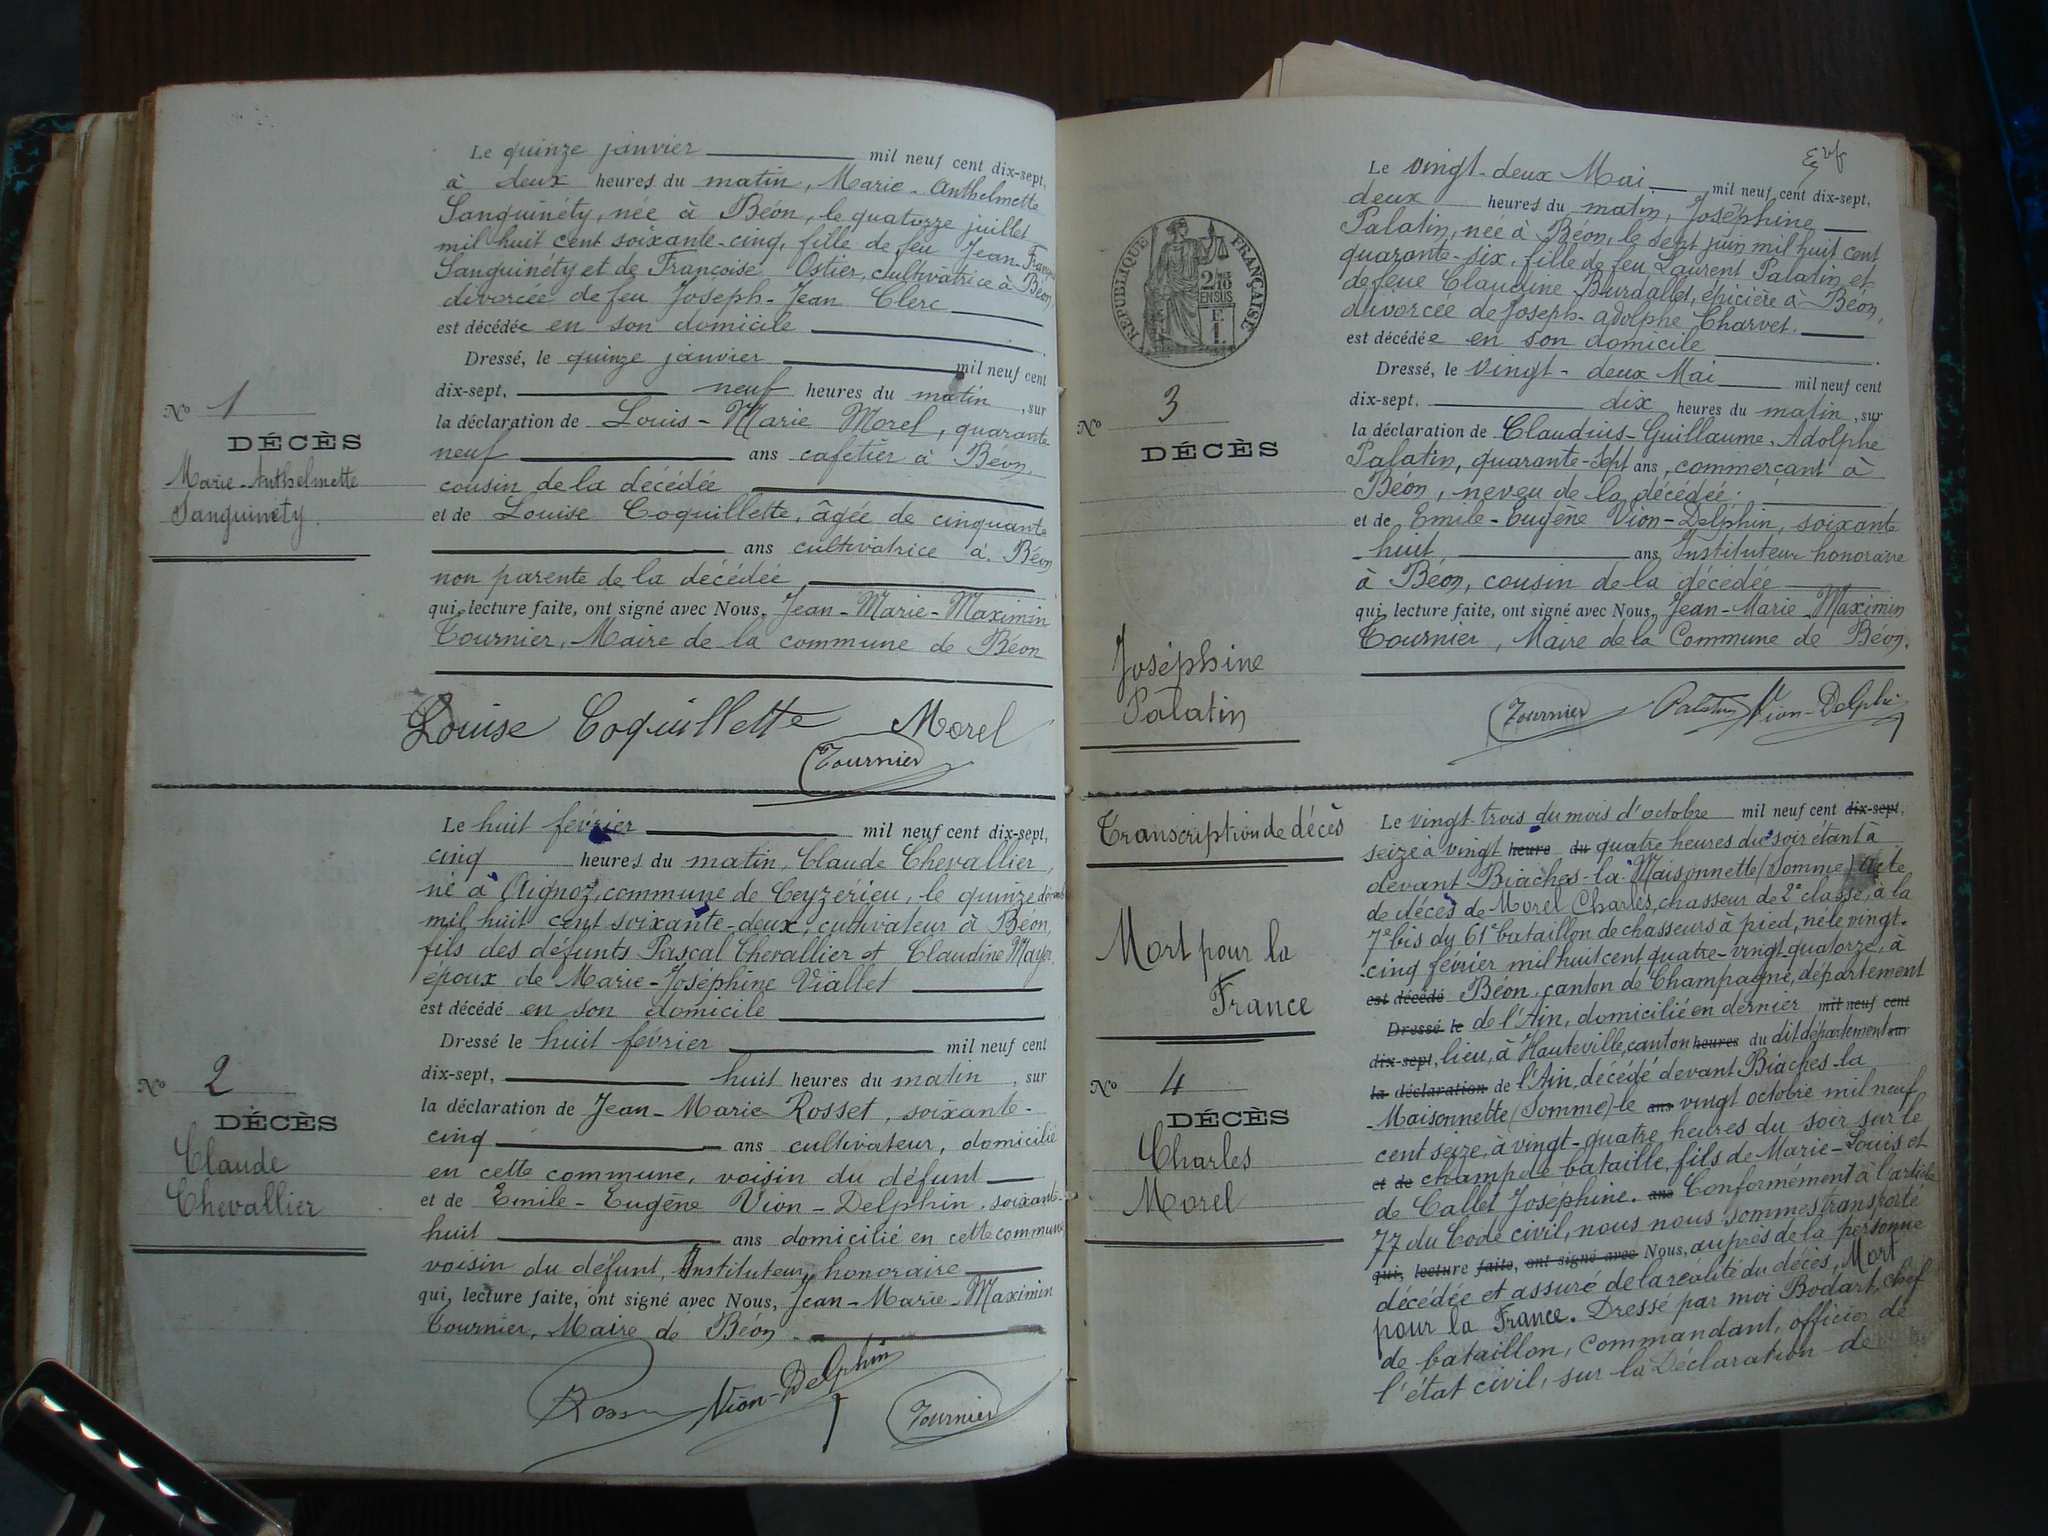 Le quinze janvier mil neuf cent dix-sept,
à deux heures du matin, Marie-Anthelmette
Sanguinéty, née à Béon, le quatorze juillet
mil huit cent soixante-cinq, fille de feu Jean-François
Sanguinéty et de Françoise Ostier, cultivatrice à Béon,
divorcée de feu Joseph-Jean Clerc
est décédée en son domicile
Dressé, le quinze janvier mil neuf cent
dix-sept, neuf heures du matin, sur
la déclaration de Louis-Marie Morel, quarante
neuf ans cafetier à Béon
cousin de la décédée
et de Louise Coquillette, âgée de cinquante
ans cultivatrice à Béon
non parente de la décédée
qui, lecture faite, ont signé avec Nous, Jean-Marie-Maximin
Tournier, Maire de la commune de Béon
No 1
DÉCÈS
Marie-Anthelmette
Sanguinéty.
Louise Coquillette Morel
Tournier
Le huit février mil neuf cent dix-sept,
cinq heures du matin, Claude Chevallier,
né à Aignoz, commune de Ceyzérieu, le quinze
mil huit cent soixante-deux, cultivateur à Béon,
fils des défunts Pascal Chevallier et Claudine Mayer,
époux de Marie-Joséphine Viallet
est décédé en son domicile
Dressé le huit février mil neuf cent
dix-sept, huit heures du matin, sur
la déclaration de Jean-Marie Rosset, soixante-
cinq ans cultivateur, domicilié
en cette commune, voisin du défunt
et de Emile-Eugène Vion-Delphin, soixante-
huit ans domicilié en cette commune
voisin du défunt, Instituteur honoraire
qui, lecture faite, ont signé avec Nous, Jean-Marie-Maximin
Tournier, Maire de Béon.
No 2
DÉCÈS
Claude
Chevallier
Vion-Delphin
Tournier
Le vingt-deux Mai mil neuf cent dix-sept,
deux heures du matin, Joséphine
Palatin, née à Béon, le sept juin mil huit cent
quarante-dix, fille de feu Laurent Palatin et
de feue Claudine Burdallet, épicière à Béon,
divorcée de Joseph-Adolphe Charvet.
est décédée en son domicile
Dressé, le vingt-deux Mai mil neuf cent
dix-sept, dix heures du matin, sur
la déclaration de Claudius-Guillaume-Adolphe
Palatin, quarante-sept ans, commerçant à
Béon, neveu de la décédée.
et de Emile-Eugène Vion-Delphin, soixante
-huit, ans, Instituteur honoraire
à Béon, cousin de la décédée
qui, lecture faite, ont signé avec Nous, Jean-Marie-Maximin
Tournier, Maire de la Commune de Béon.
RÉPUBLIQUE FRANÇAISE
2/10
EN SUS
No 3
DÉCÈS
Joséphine
Palatin
Tournier Palatin Vion-Delphin
Transcription de décès
Mort pour la
France
No 4
DÉCÈS
Charles
Morel
Le vingt-trois du mois d'octobre mil neuf cent dix-sept,
seize à vingt heure du quatre heures du soir étant à
devant Biaches-la-Maisonnette (Somme) Acte
de décès de Morel Charles, chasseur de 2e classe, à la
7e bis du 61e bataillon de chasseurs à pied, né le vingt-
-cinq février mil huit cent quatre-vingt-quatorze, à
est décédé Béon, canton de Champagne, département
Dressé le de l'Ain, domicilié en dernier mil neuf cent
dix-sept, lieu, à Hauteville, canton heures du dit département sur
la déclaration de l'Ain, décédé devant Biaches-la
-Maisonnette (Somme) le ans vingt octobre mil neuf
cent seize, à vingt-quatre heures du soir sur le
et de champ de bataille, fils de Marie-Louis et
de Callet Joséphine. ans Conformément à l'article
77 du Code civil, nous nous sommes transporté
qui, lecture faite, ont signé avec Nous, auprès de la personne
décédée et assuré de la réalité du décès, Mort
pour la France. Dressé par moi Bodart, chef
de bataillon, commandant, officier de
l'état civil, sur la Déclaration de